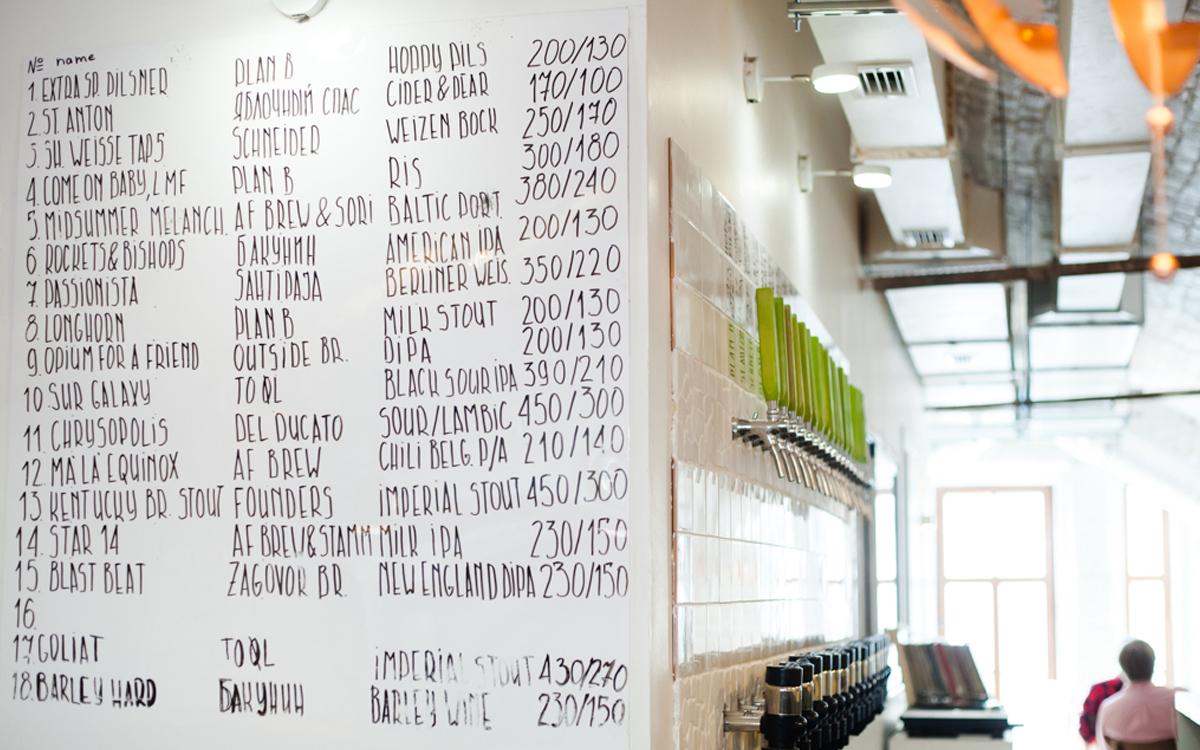 № name
1. EXTRA SP. PILSNER PLAN B HOPPY PILS 200/130
2. ST ANTON ЯБЛОЧНЫЙ СПАС CIDER & PEAR 170/100
3. SH. WEISSE TAP5 SCHNEIDER WEIZEN BOCK 250/170
4. COME ON BABY, LMF PLAN B RIS 300/180
5. MIDSUMMER MELANCH. AF BREW & SORI BALTIC PORT. 380/240
6. ROCKETS & BISHOPS БАКУНИН AMERICAN IPA 200/130
7. PASSIONISTA JAHTIPAJA BERLINER WEIS. 350/220
8. LONGHORN PLAN B MILK STOUT 200/130
9. OPIUM FOR A FRIEND OUTSIDE BR. DIPA 200/130
10. SUR GALAXY TO ØL BLACK SOUR IPA 390/210
11. CHRYSOPOLIS DEL DUCATO SOUR/LAMBIC 450/300
12. MA LA EQUINOX AF BREW CHILI BELG. P/A 210/140
13. KENTUCKY BR. STOUT FOUNDERS IMPERIAL STOUT 450/300
14. STAR 14 AF BREW & STAMM MILK IPA 230/150
15. BLAST BEAT ZAGOVOR BR. NEW ENGLAND DIPA 230/150
16.
17. GOLIAT TO ØL IMPERIAL STOUT 430/270
18. BARLEY HARD БАКУНИН BARLEY WINE 230/150